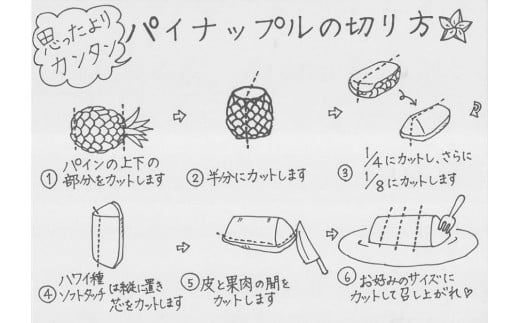 思ったより
カンタン
パイナップルの切り方
① パインの上下の
部分をカットします
② 半分にカットします
③ 1/4にカットし、さらに
1/8にカットします
④ ハワイ種
ソフトタッチ は縦に置き
芯をカットします
⑤ 皮と果肉の間を
カットします
⑥ お好みのサイズに
カットして召し上がれ♡